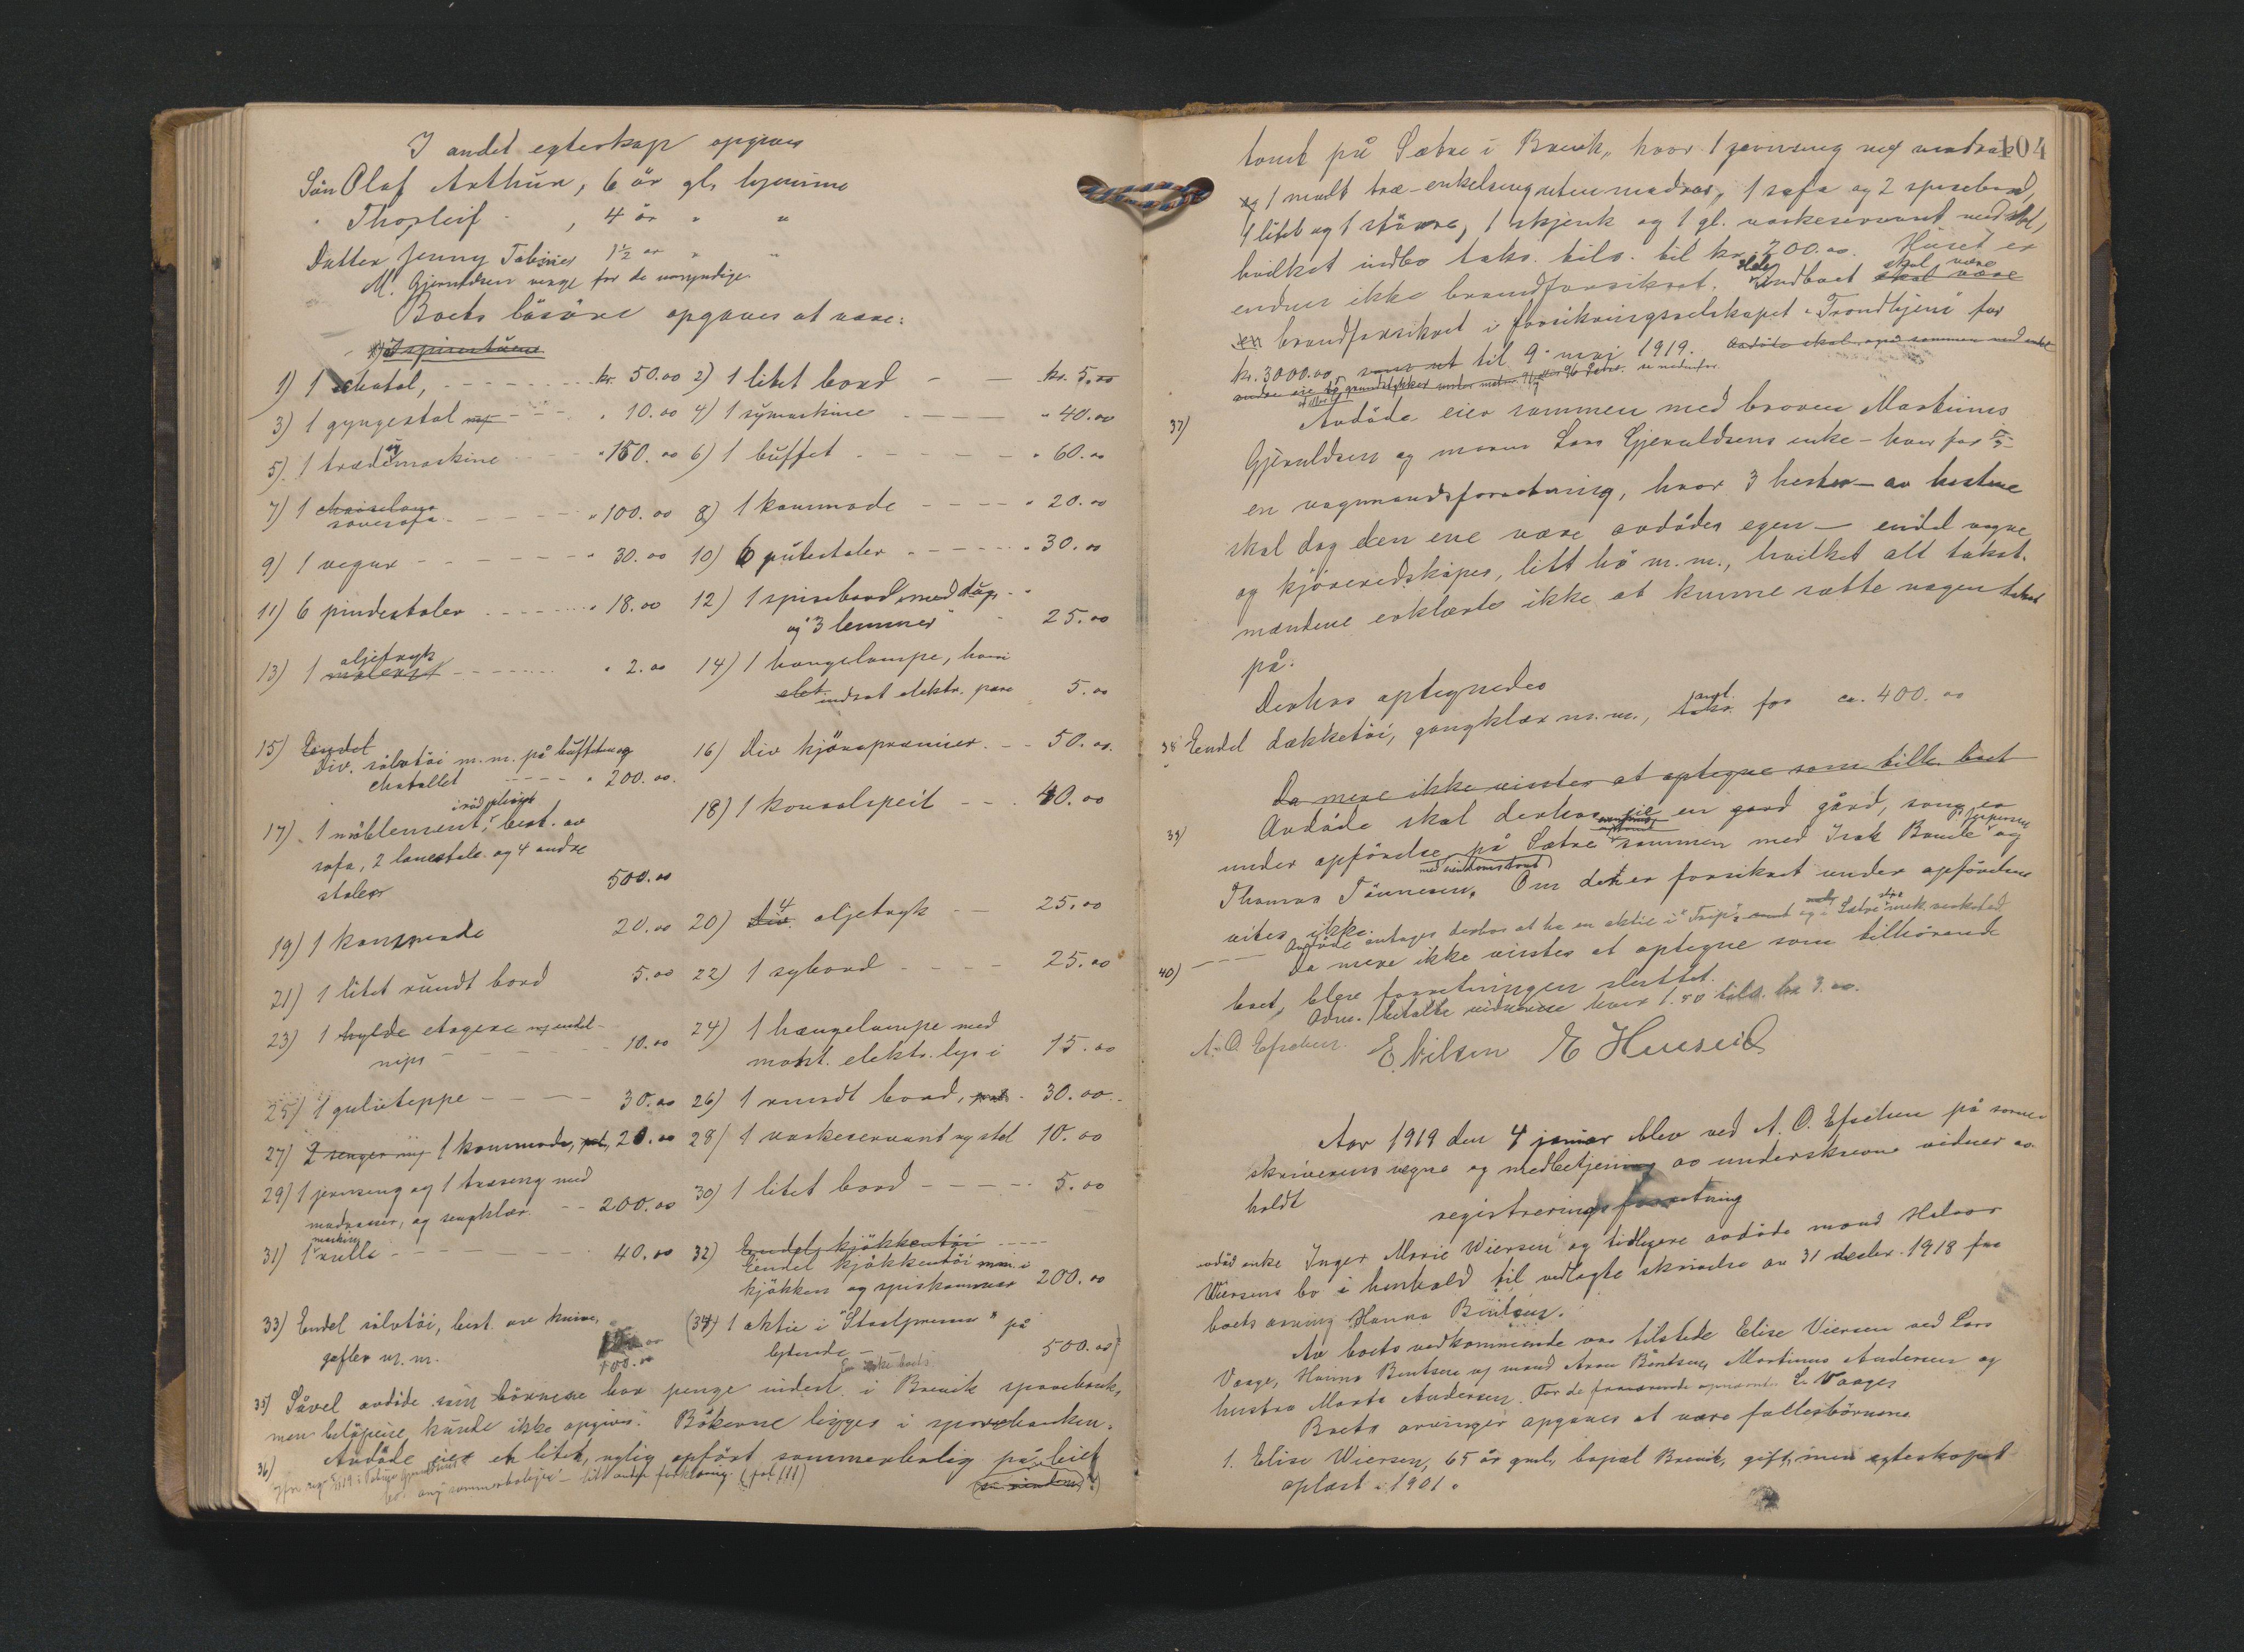 I andet egteskap opgives
Søn Olaf Arthur, 6 år gl. hjemme
" Thorleif , 4 år " "
Datter Jenny Tobine 1½ år " "
M. Gjeruldsen verge for de umyndige.
Boets løsøre opgaves at være:
I spisestuen
1) 1 chatol, kr. 50.00 2) 1 litet bord kr. 5.00
3) 1 gyngestol " 10.00 4) 1 symaskine " 40.00
5) 1 træde symaskine " 150.00 6) 1 buffet " 60.00
7) 1 chaiselong sovesofa " 100.00 8) 1 kommode " 20.00
9) 1 vegur " 30.00 10) 6 putestoler " 30.00
11) 6 pindestoler " 18.00 12) 1 spisebord med duge
og 3 lemmer 25.00
13) 1 oljetryk " 2.00 14) 1 hængelampe, hvori
indsat elektr. pære 5.00
15) Endel
Div. sølvtøi m.m. på buffeten og 16) Div kjørepræmier 50.00
chatollet " 200.00
i rød plysch
17) 1 møblement, best. av 18) 1 konsolspeil 40.00
sofa, 2 lænestole og 4 andre
stoler 500.00
19) 1 kommode 20.00 20) Div. 4 oljetryk 25.00
21) 1 litet rundt bord 5.00 22) 1 sybord 25.00
23) 1 hylde etagere og endel 24) 1 hængelampe med
nips 10.00 mont. elektr. lys i 15.00
25) 1 gulvteppe 30.00 26) 1 rundt bord, 30.00
27) 2 senger 1 kommode, 20.00 28) 1 vaskeservant og stel 10.00
29) 1 jernseng og 1 træseng med
madrasser, og sengklær 200.00 30) 1 litet bord 5.00
maskin
31) 1 rulle 40.00 32) Endel kjøkkentøi
Endel kjøkkentøi m.m. i
kjøkken og spiskammer 200.00
33) Endel sølvtøi, best. av knive, (34) 1 aktie i "Staalpressen" på
gafler m.m. 100.00 lydende 500.00)
35) Såvel avdøde som børnene har penge indest. i Brevik sparebank,
men beløpene kunde ikke opgives. Bøkerne ligger i sparebanken.
36) Avdøde eier et litet, nylig opført sommerbolig på leiet
104
tomt på Sætre i Brevik, hvor 1 jernseng med madras
og 1 malt træ-enkelseng uten madras, 1 sofa og 2 spisebord,
1 litet og 1 større, 1 skjenk og 1 gl. vaskeservant med stel,
hvilket indbo taks. tils. til kr. 200.00. Huset er
endnu ikke brandforsikret. Hele Indboet skal være
brandforsikret i forsikringsselskapet "Trondhjem" for
kr. 3000.00 til 9. mai 1919.
37) Avdøde eier sammen med broren Martinius
Gjeruldsen og moren Lars Gjeruldsens enke - hver for ⅓ -
en vognmandsforretning, hvor 3 hester - av hestene
skal dog den ene være avdødes egen - endel vogne
og kjøreredskaper, litt hø m.m., hvilket alt takst-
mændene erklærte ikke at kunne sætte nogen takst
på.
Derhos optegnedes
38 Endel dækketøi, gangklær m.m., for ca. 400.00
Da mere ikke visstes at optegne som tilh. boet
39) Avdøde skal derhos eie en gård, som er
under opførelse på Sætre sammen med Isak Jespersen og
Thomas Tønnesen. Om den er forsikret under opførelsen
vites ikke.
Avdøde antages derhos at ha en aktie i og i Sætre mek. verksted
40) Da mere ikke visstes at optegne som tilhørende
boet, blev forretningen sluttet.
betalte vidnerne hver 1.50 tils. kr 3.00.
E. Nilsen
Aar 1919 den 4 januar blev ved A. O. på soren-
skriverens vegne og med betjening av underskrevne vidner av-
holdt registreringsforretning
enke Inger Marie Wiersen og tidligere avdøde mand Halvor
Wiersens bo i henhold til vedlagte skrivelse av 31 decbr. 1918 fra
boets arving Hanna Bentsen.
Av boets vedkommende var tilstede Elise Wiersen ved Lars
Vaage, Hanna Bentsen og mand Bentsen, Martinus Andersen og
hustru Marta Andersen. For de fraværende opnævntes L. Vaage
Boets arvinger opgaves at være fællesbørnene
1. Elise Wiersen, 65 år gml., bopæl Brevik, gift, men egteskapet
opløst i 1901.